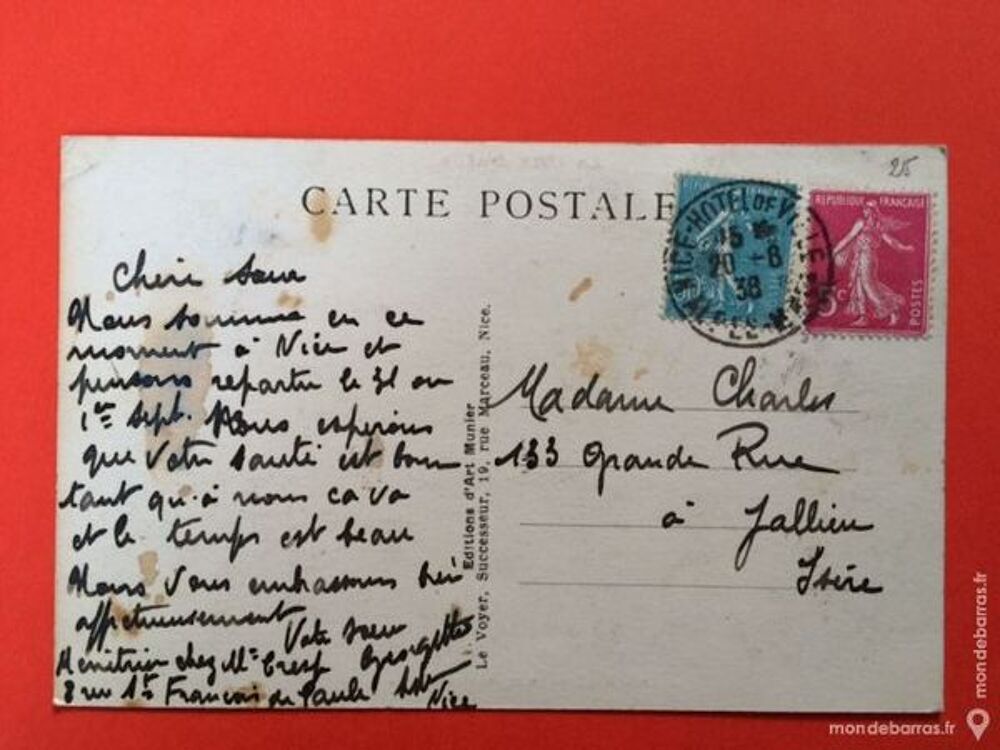 25
CARTE POSTALE
NICE-HOTEL DE VILLE
15
20 -8
38
REPUBLIQUE FRANÇAISE
5c
POSTES
Chère Sœur
Nous sommes en ce
moment à Nice et
pensons repartir le 31 ou
1er Sept. Nous esperons
que Votre santé est bonne
tant qu'à nous ca va
et le temps est beau
Nous Vous embrassons bien
affectueusement
Votre sœur
Georgette
chez Me Cresp
8 rue St François de Paule
Nice
Editions d'Art Munier
Le Voyer, Successeur, 19, rue Marceau, Nice.
Madame Charles
133 Grande Rue
à Jallieu
Isère
mondebarras.fr
mondebarras.fr